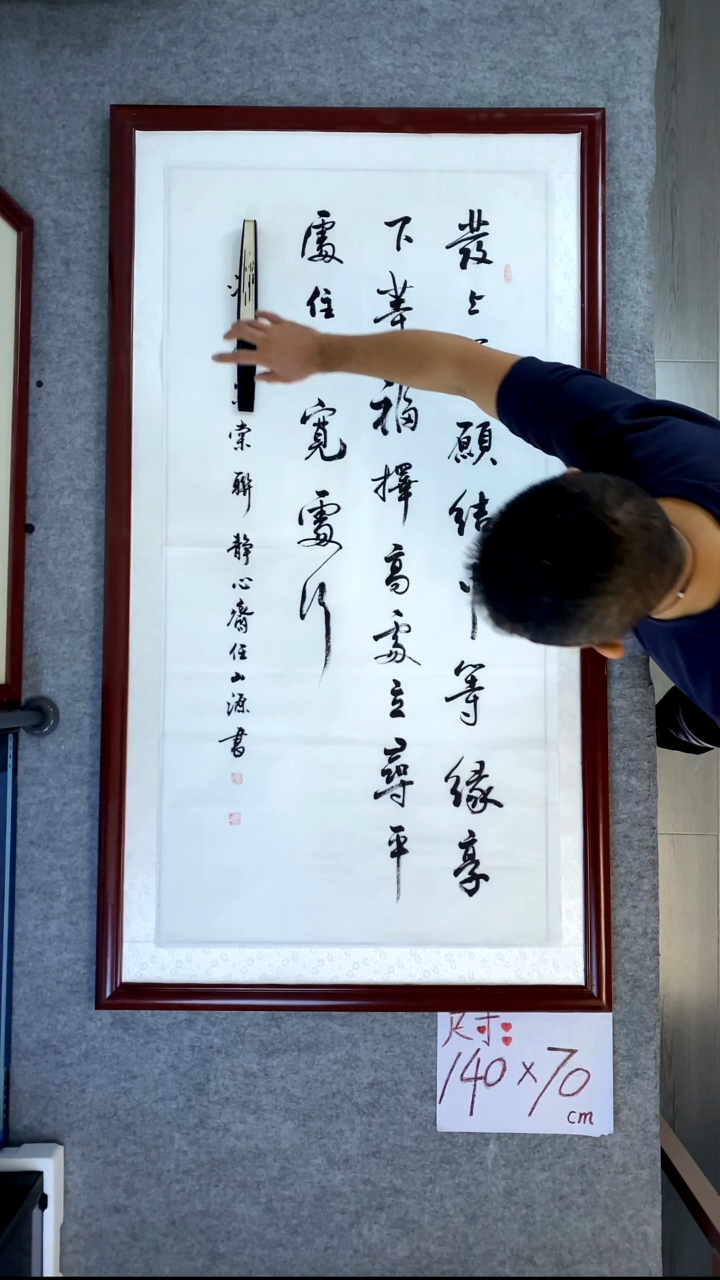 發上願結中等緣享
下等福擇高處立尋平
處住寬處行
棠聯靜心齋任山源書
尺寸:
140×70
cm